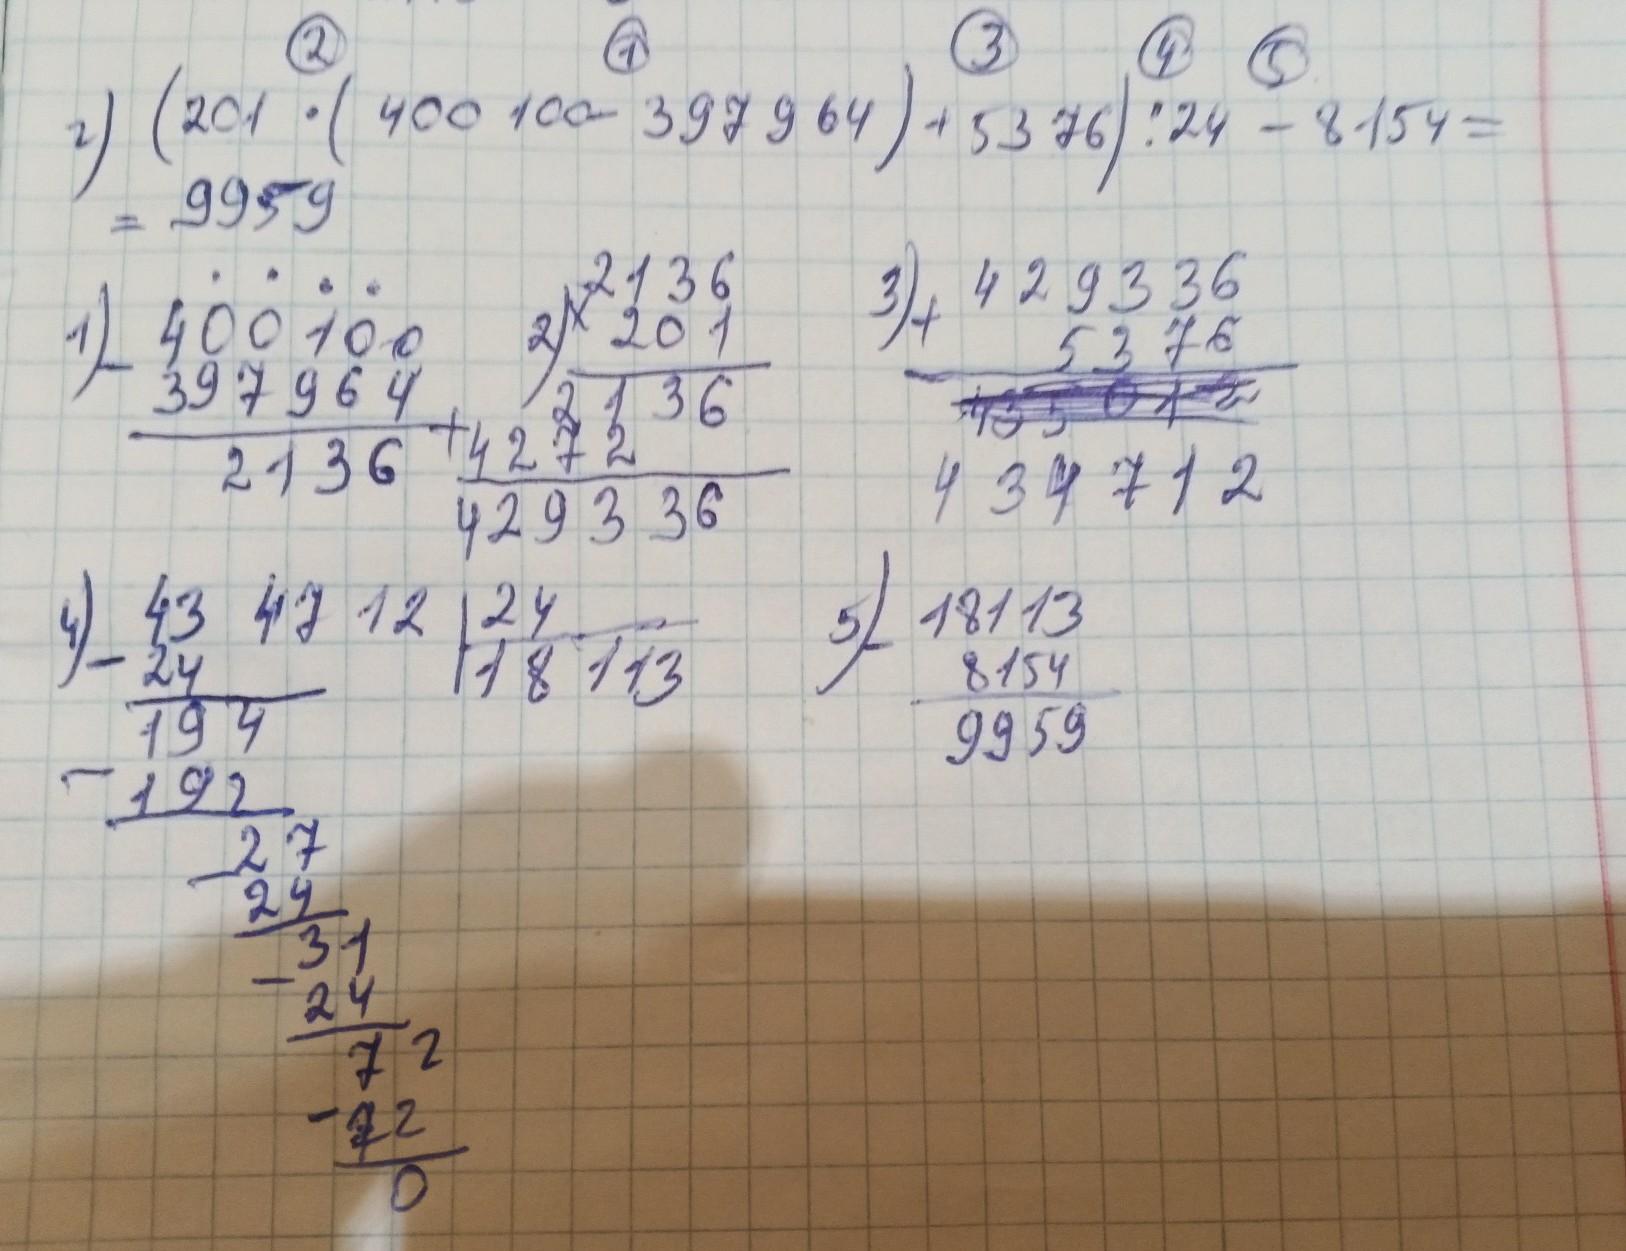 ② ① ③ ④ ⑤
г) (201 · ( 400 100 - 397 964 ) + 5376 ) : 24 - 8154 =
= 9959
1) - 400100
397964
2136
2) × 2136
201
2136
+ 4272
429336
3) + 429336
5376
434712
4) - 434712 | 24
24 | 18113
194
- 192
- 27
24
- 31
24
72
- 72
0
5) - 18113
8154
9959